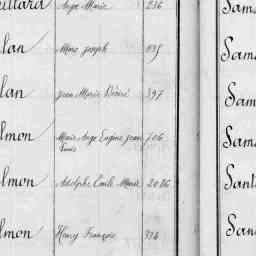 illard Ange Marie 236 Sam
lan Marc Joseph 835 Sam
lan Jean Marie Désiré 397 Sam
lmon Marie Ange Eugène Jean 706 Sam
Louis
lmon Adolphe Emile Marie 2026 Sant
lmon Henry François 374 San